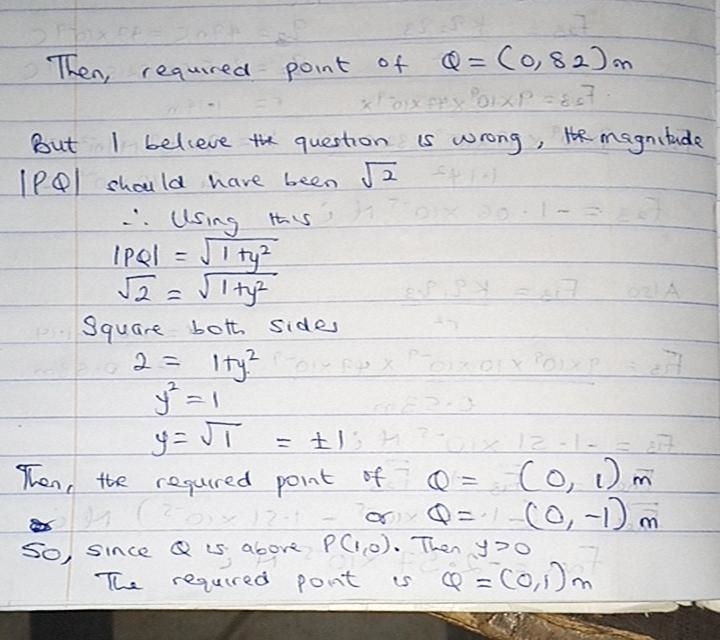 Then, required point of Q = (0,82)m
But I believe the question is wrong, the magnitude
|PQ| should have been √2
∴ Using this
|PQ| = √1+y²
√2 = √1+y²
Square both sides
2 = 1+y²
y² = 1
y = √1 = ±1
Then, the required point of Q = (0, 1) m
or Q = (0, -1) m
So, since Q is above P(1,0). Then y>0
The required point is Q = (0,1)m